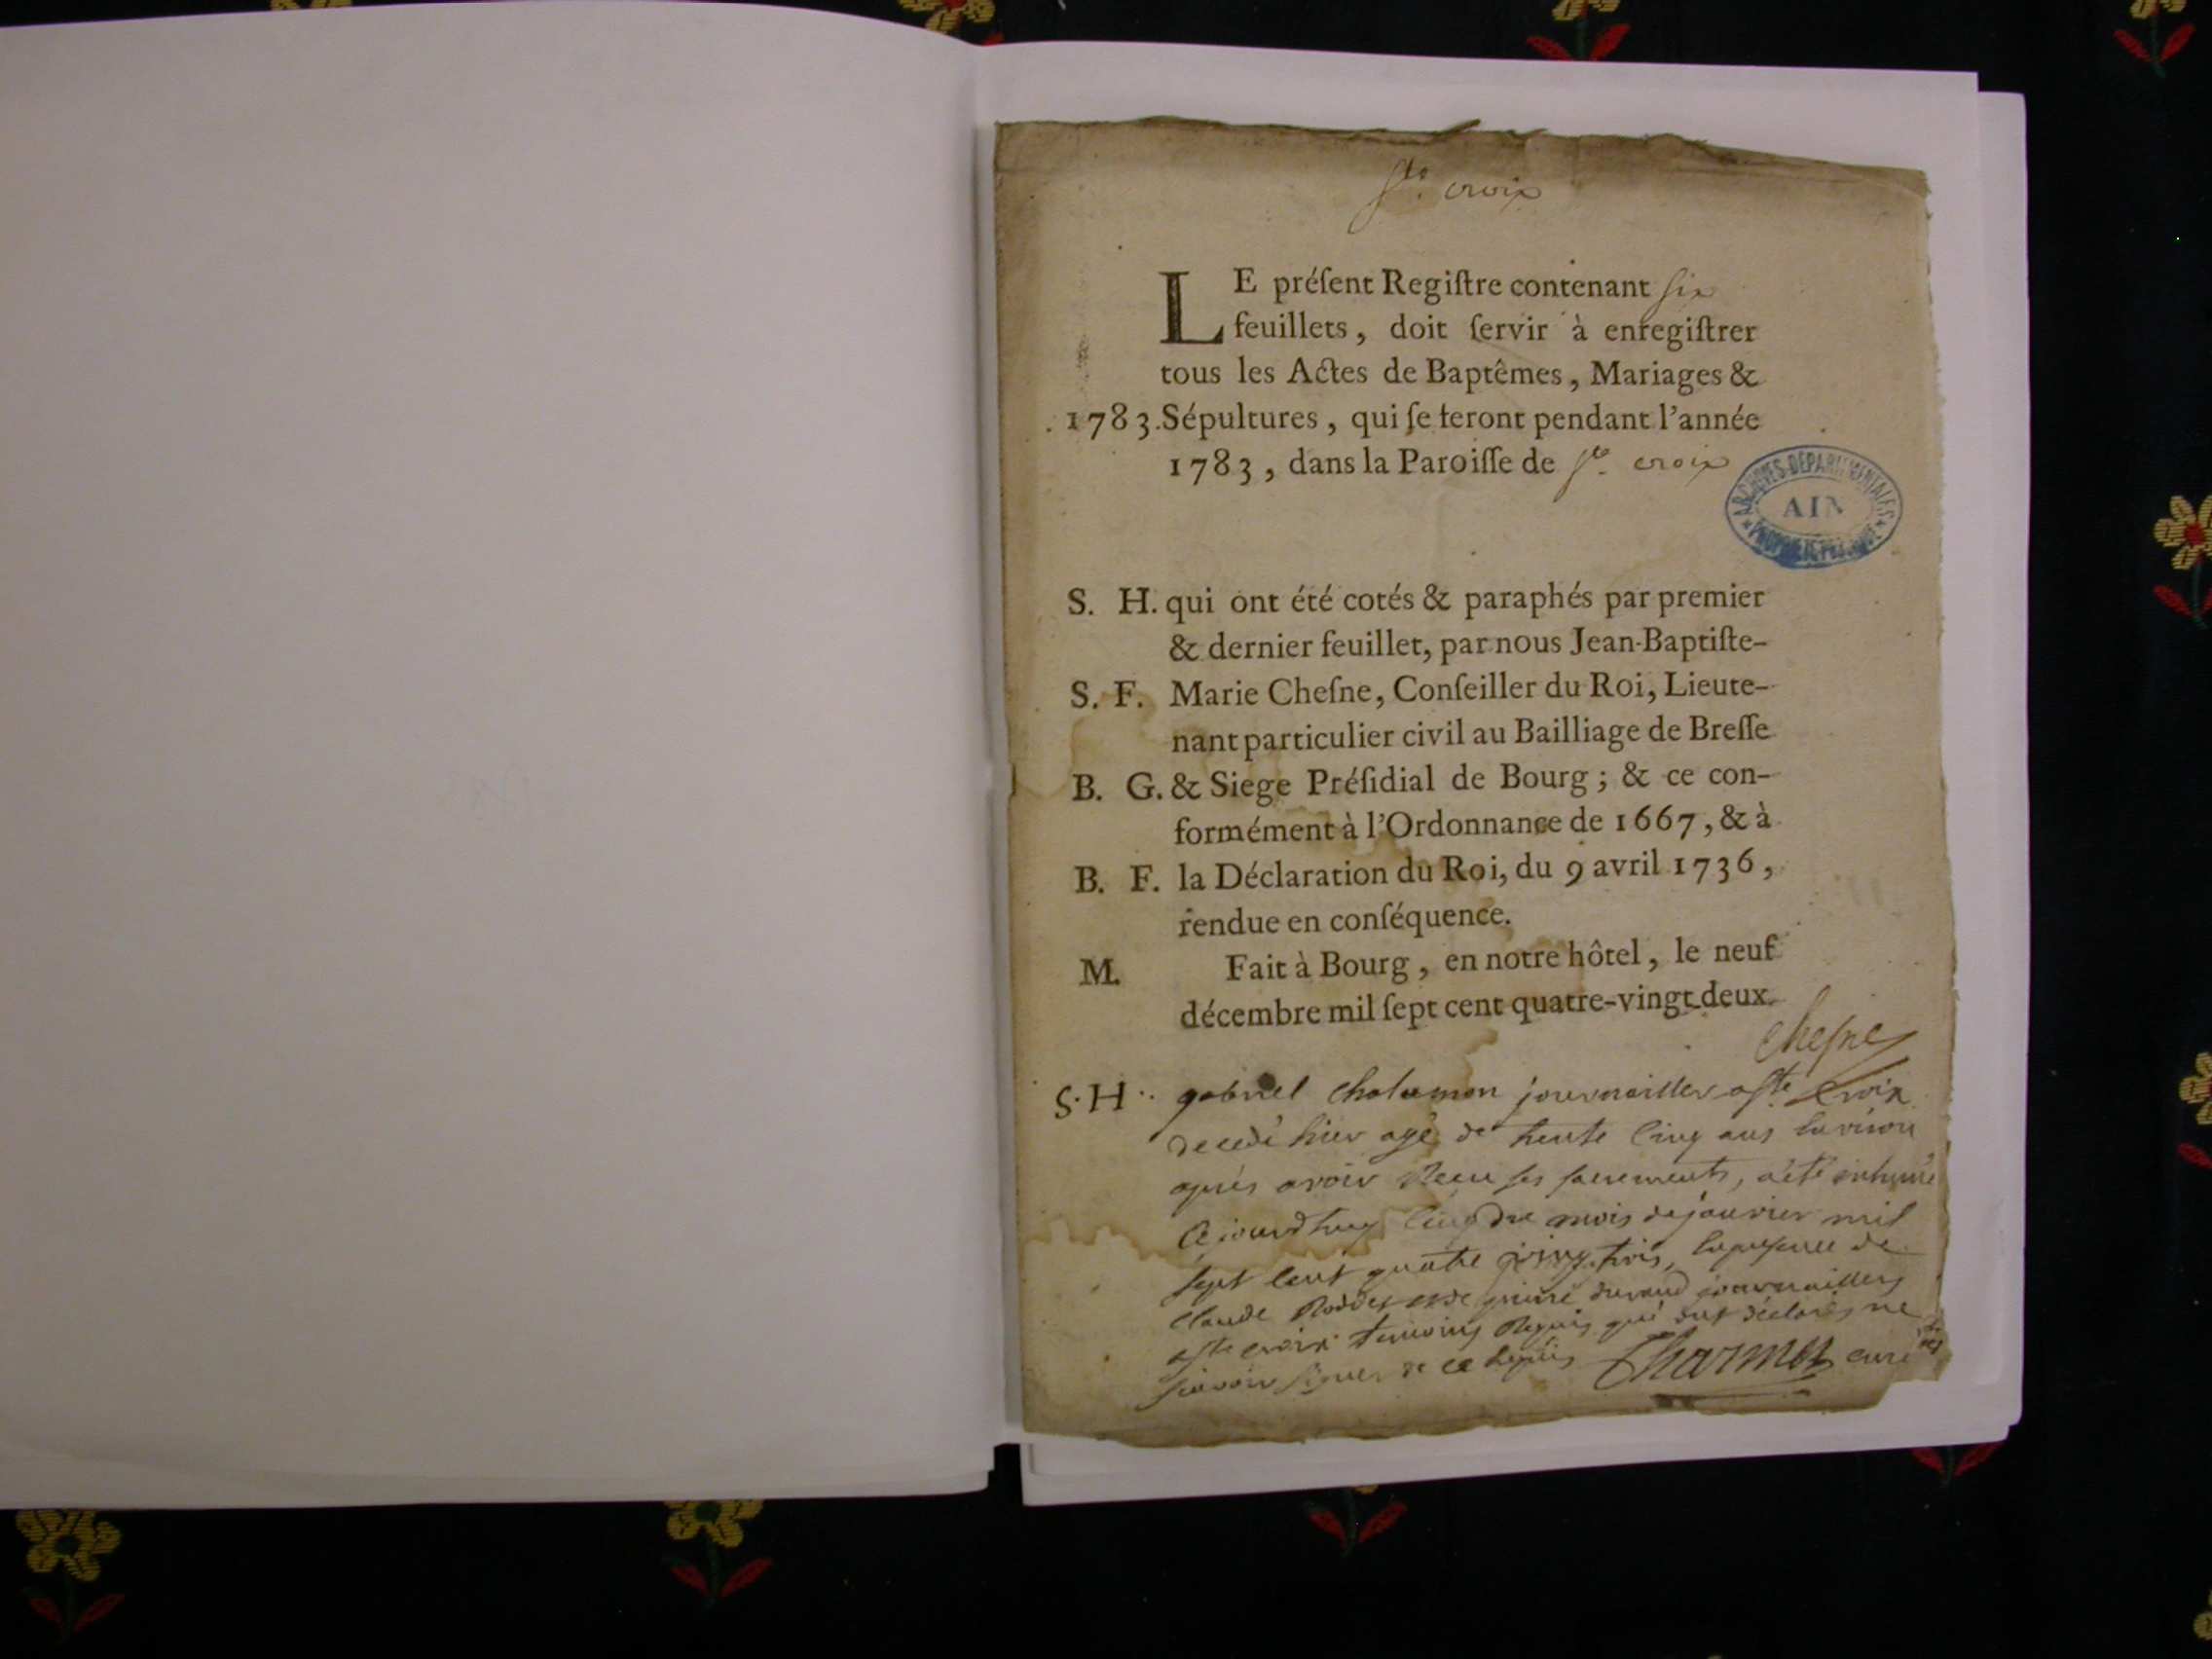 Ste. croix
LE préſent Regiſtre contenant six
feuillets, doit ſervir à enregiſtrer
tous les Actes de Baptêmes, Mariages &
1783. Sépultures, qui ſe feront pendant l'année
1783, dans la Paroiſſe de Ste. croix
ARCHIVES DEPARTEMENTALES
AIN
S. H. qui ont été cotés & paraphés par premier
& dernier feuillet, par nous Jean-Baptiſte-
S. F. Marie Cheſne, Conſeiller du Roi, Lieute-
nant particulier civil au Bailliage de Breſſe
B. G. & Siege Préſidial de Bourg ; & ce con-
formément à l'Ordonnance de 1667, & à
B. F. la Déclaration du Roi, du 9 avril 1736,
rendue en conſéquence.
M. Fait à Bourg, en notre hôtel, le neuf
décembre mil ſept cent quatre-vingt-deux.
Cheſne
S. H. gabriel Chalamon journailler a ste Croix
decedé hier agé de trente Cinq ans Environ
aprés avoir Reçu ses sacrements, a été inhumé
Cejourdhuy Cinq du mois de janvier mil
sept Cent quatre vingt trois, En presence de
Claude Roddet et de pierre durand journaillers
a ste croix temoins Requis qui ont déclarés ne
sçavoir signer de ce Requis Charmet curé